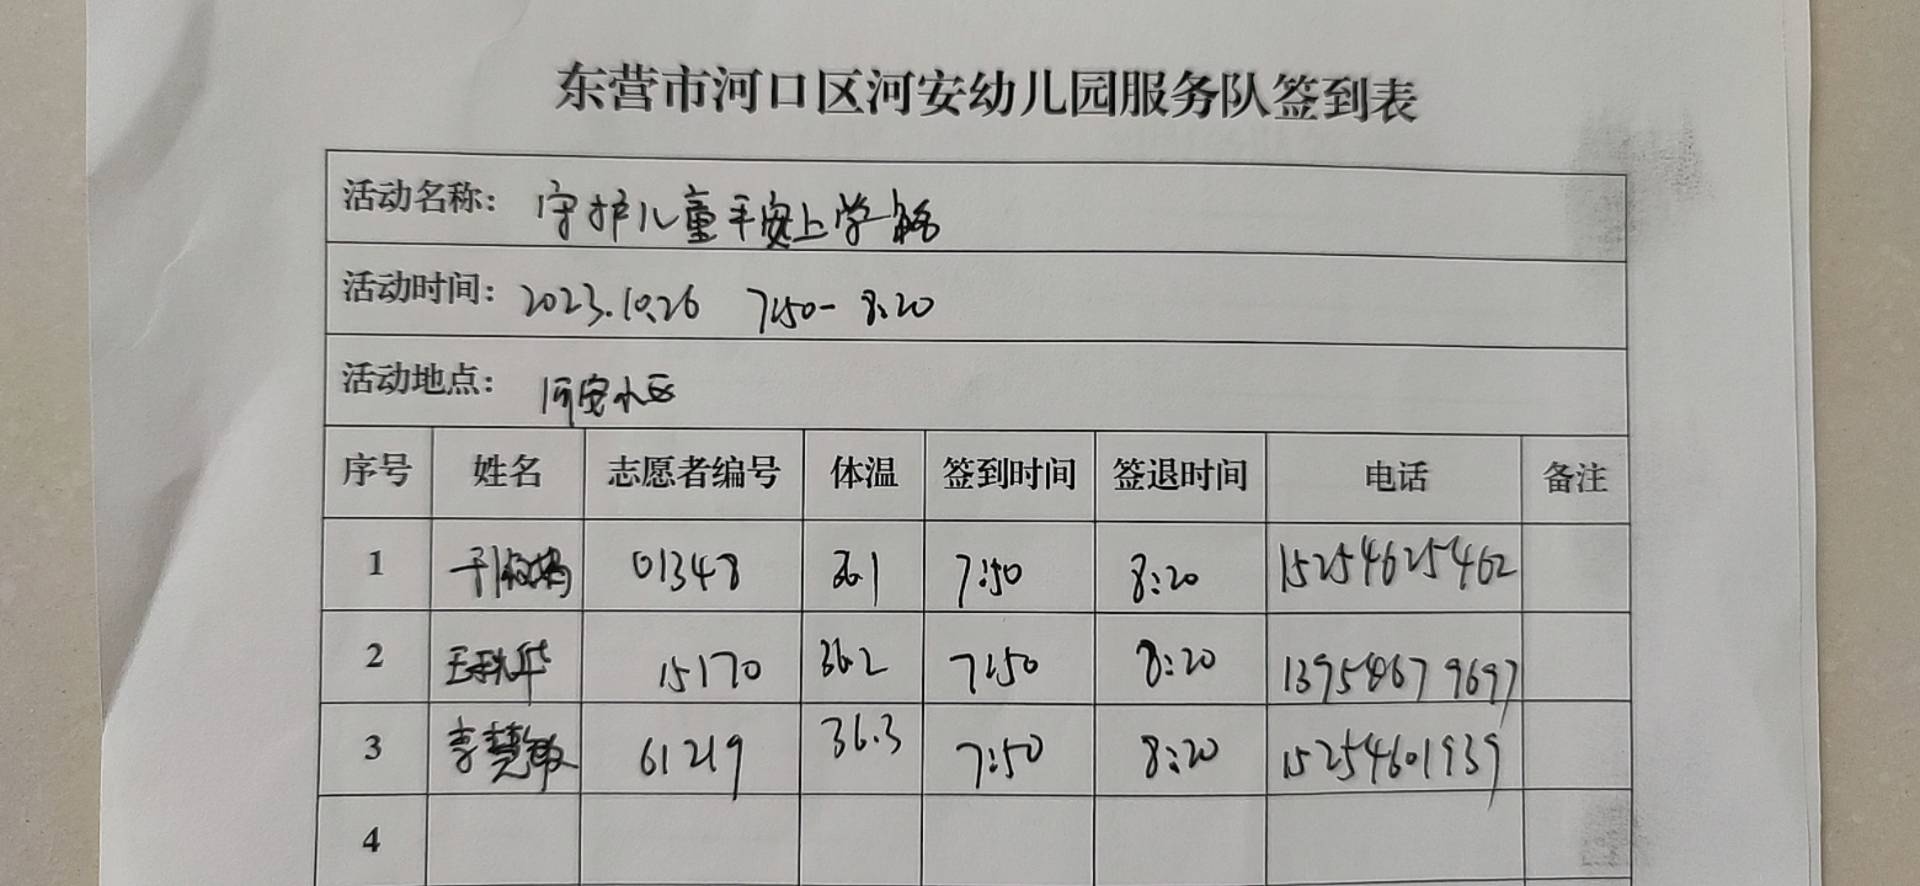 东营市河口区河安幼儿园服务队签到表
活动名称： 守护儿童平安上学路
活动时间： 2023.10.26 7:50- 8:20
活动地点： 河安小区
序号 姓名 志愿者编号 体温 签到时间 签退时间 电话 备注
1 01348 36.1 7:50 8:20 15254625462
2 王秋华 15170 36.2 7:50 8:20 13954679697
3 李慧敏 61219 36.3 7:50 8:20 15254601939
4